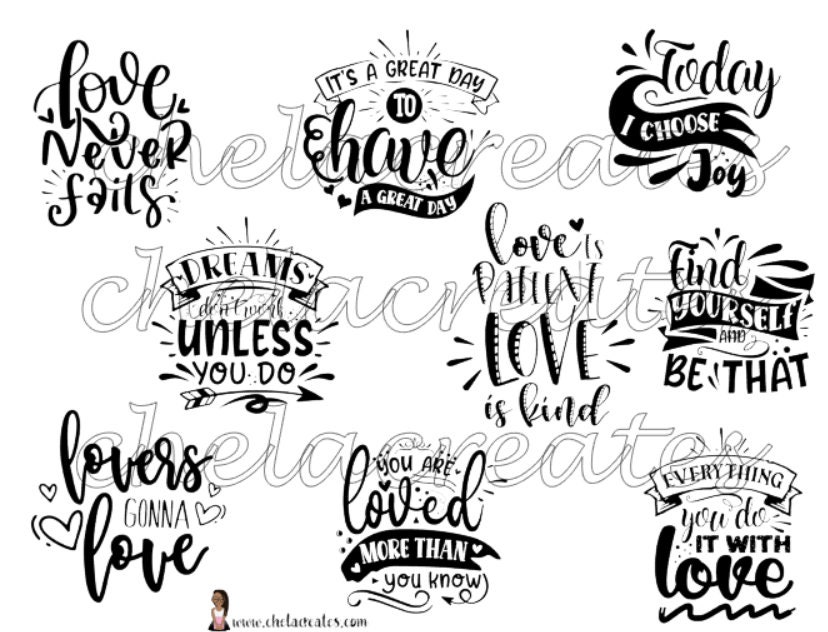 love
Never
fails
IT'S A GREAT DAY
TO
have
A GREAT DAY
Today
I CHOOSE
Joy
DREAMS
don't work
UNLESS
YOU DO
love is
PATIENT
LOVE
is kind
find
YOURSELF
AND
BE THAT
lovers
GONNA
love
YOU ARE
loved
MORE THAN
you know
EVERYTHING
you do
IT WITH
love
chelacreates
chelacreates
chelacreates
www.chelacreates.com